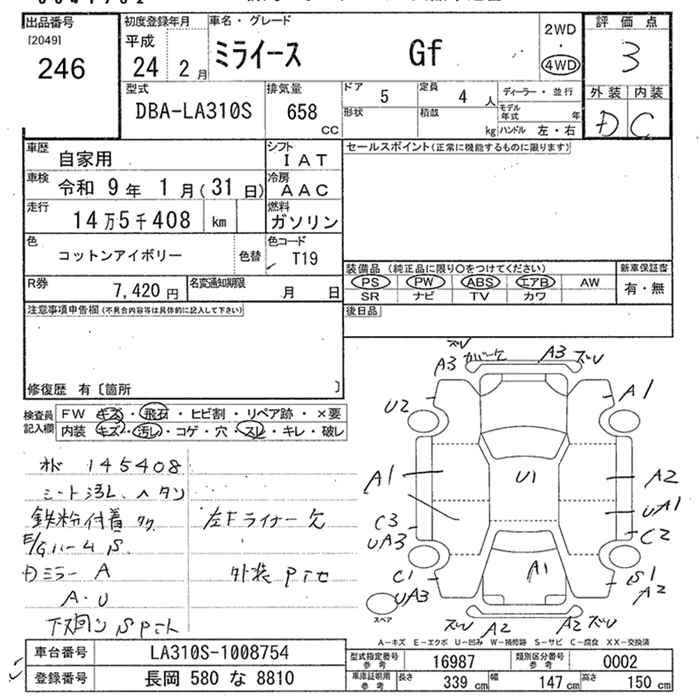 出品番号
[2049]
246
初度登録年月
平成
24 2月
車名・グレード
ミライース Gf
2WD
・
4WD
評価点
3
外装 内装
D C
型式
DBA-LA310S
排気量
658
cc
ドア 5
定員 4 人
形状
積載 kg
ディーラー・並行
モデル年式 年
ハンドル 左・右
車歴
自家用
シフト
I A T
車検
令和 9年 1月(31日)
冷房
A A C
走行
14万5千408 km
燃料
ガソリン
色
コットンアイボリー
色替
色コード
T19
R券
7,420円
名変通知期限
月 日
セールスポイント(正常に機能するものに限ります)
装備品 (純正品に限り○をつけてください)
新車保証書
PS PW ABS エアB AW
SR ナビ TV カワ
有・無
後日品
注意事項申告欄(不具合内容等は具体的に記入して下さい)
修復歴 有〔箇所 〕
検査員
記入欄
FW キズ・飛石・ヒビ割・リペア跡・×要
内装 キズ・汚レ・コゲ・穴・スレ・キレ・破レ
145408
シート汚レ、ヘタン
鉄粉付着
左Fライナー欠
E/Gルーム S.
Dミラー A
外装
A・U
下回り S
ズレ
A3
カバー欠
A3
ズレ
U2
A1
A1
U1
A2
UA1
C3
UA3
C2
C1
UA3
A1
S1
A2
スペア
ズレ
A2
A2
ズレ
A-キズ E-エクボ U-凹み W-補修跡 S-サビ C-腐食 XX-交換済
車台番号
LA310S-1008754
登録番号
長岡 580 な 8810
型式指定番号
参考
16987
類別区分番号
参考
0002
車庫証明用
参考
長さ 339 cm
幅 147 cm
高さ 150 cm